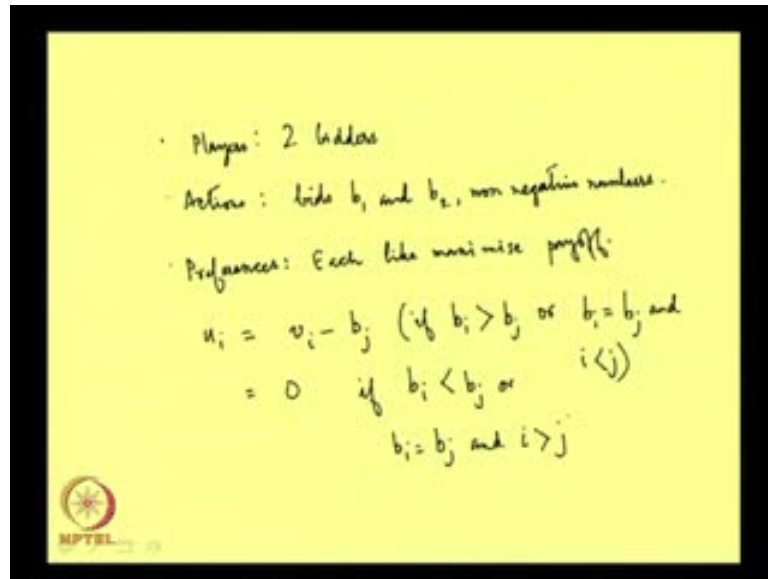 Players: 2 bidders
Actions: bids b₁ and b₂, non negative numbers.
Preferences: Each like maximise payoff.
uᵢ = vᵢ - bⱼ (if bᵢ > bⱼ or bᵢ = bⱼ and i < j)
= 0 if bᵢ < bⱼ or
bᵢ = bⱼ and i > j
NPTEL